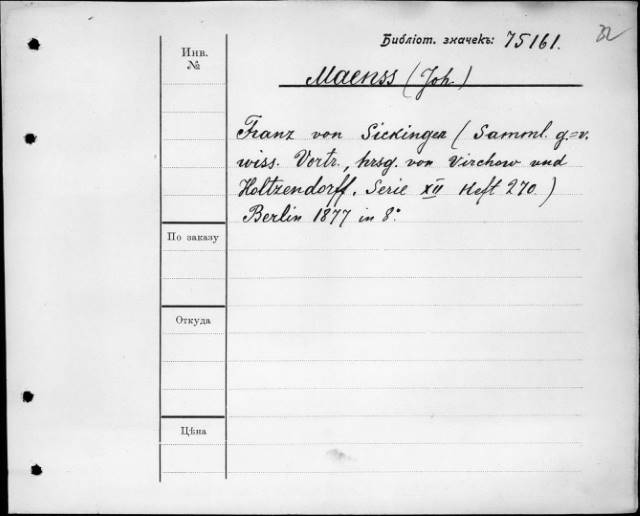 Библіот. значекъ: 75161.
Инв. №
Maenss (Joh.)
Franz von Sickingen (Samml. g.=v.
wiss. Vortr., hrsg. von Virchow und
Holtzendorff. Serie XII Heft 270.)
Berlin 1877 in 8°
По заказу
Откуда
Цѣна